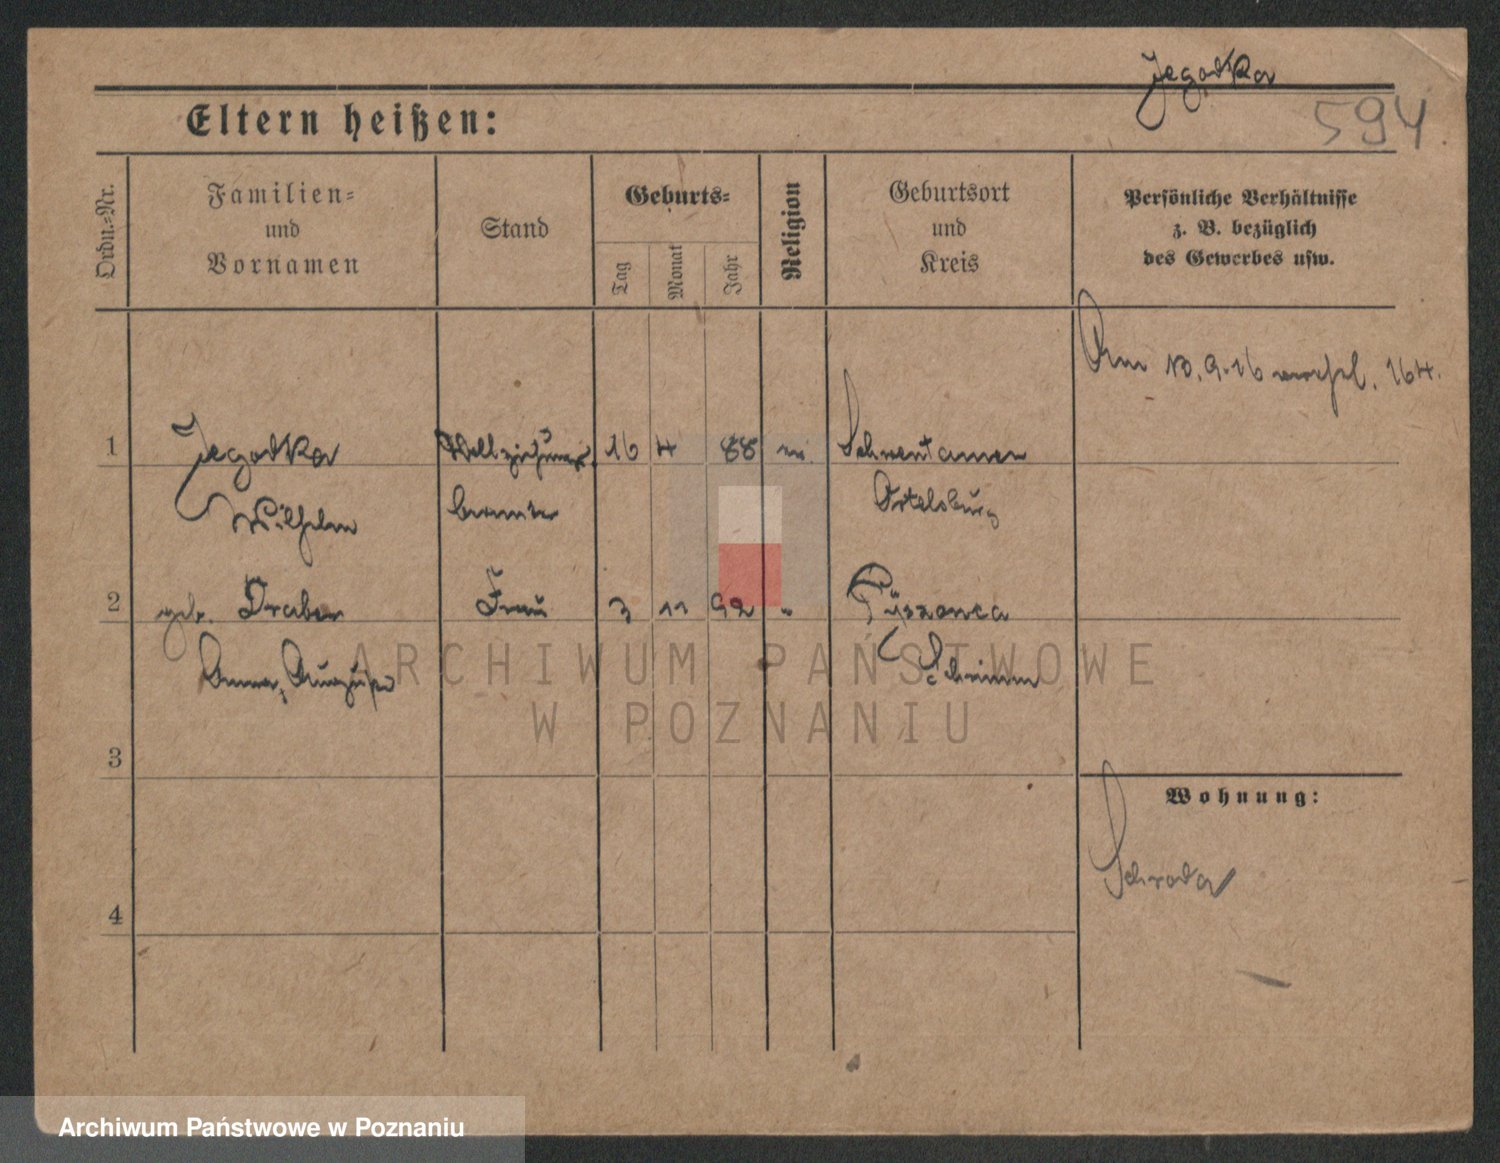 Jegodka
594.
Eltern heißen:
Ordn.=Nr.
Familien=
und
Vornamen
Stand
Geburts=
Tag
Monat
Jahr
Religion
Geburtsort
und
Kreis
Persönliche Verhältnisse
z. B. bezüglich
des Gewerbes usw.
1
Jegodka
Wilhelm
Vollziehungs
beamter
16 4 88
Schwentainen
Ortelsburg
Am 10.9.16 164.
2
geb. Draber
Anna, Auguste
Frau
3 11 92 "
Pyszonca
Schrimm
3
4
Wohnung:
Schroda
ARCHIWUM PAŃSTWOWE
W POZNANIU
Archiwum Państwowe w Poznaniu